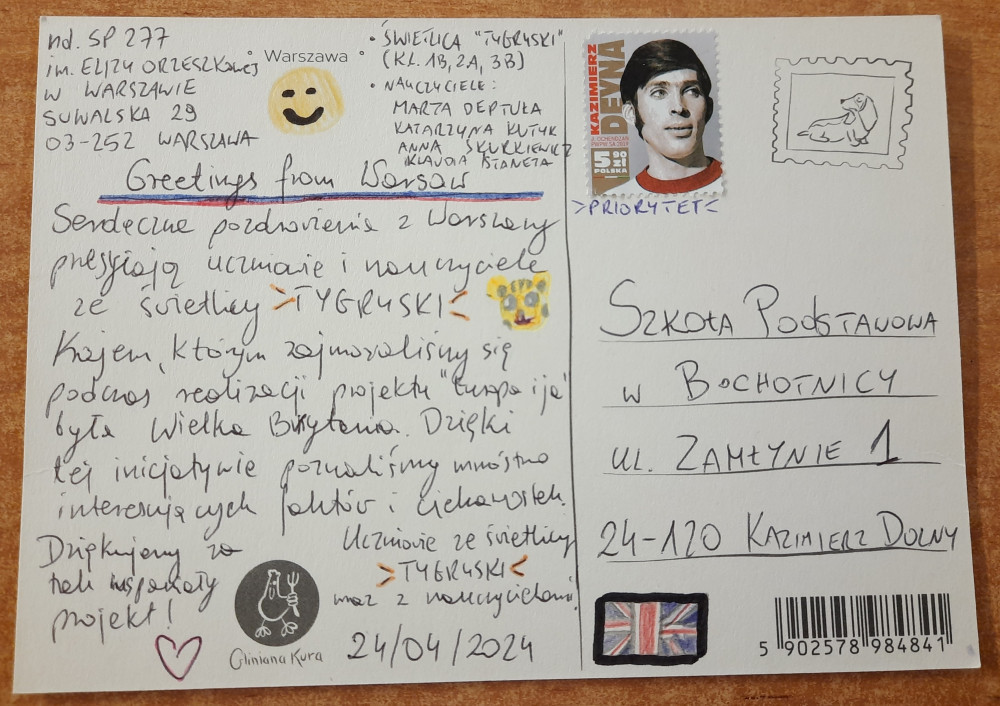 nd. SP 277
im. ELIZY ORZESZKOWEJ
W WARSZAWIE
SUWALSKA 29
03-252 WARSZAWA
Warszawa
• ŚWIETLICA "TYGRYSKI"
(KL. 1B, 2A, 3B)
• NAUCZYCIELE:
MARTA DEPTUŁA
KATARZYNA KUTYK
ANNA SKURKIEWICZ
KLAUDIA
Greetings from Warsaw
Serdeczne pozdrowienia z Warszawy
przesyłają uczniowie i nauczyciele
ze świetlicy >TYGRYSKI<
Krajem, którym zajmowaliśmy się
podczas realizacji projektu "Europa i ja"
była Wielka Brytania. Dzięki
tej inicjatywie poznaliśmy mnóstwo
interesujących faktów i ciekawostek.
Dziękujemy za
tak wspaniały
projekt!
Uczniowie ze świetlicy
>TYGRYSKI<
wraz z nauczycielami!
24/04/2024
Gliniana Kura
KAZIMIERZ
DEYNA
5 90
zł
POLSKA
>PRIORYTET<
SZKOŁA PODSTAWOWA
W BOCHOTNICY
UL. ZAMŁYNIE 1
24-120 KAZIMIERZ DOLNY
5 902578 984841